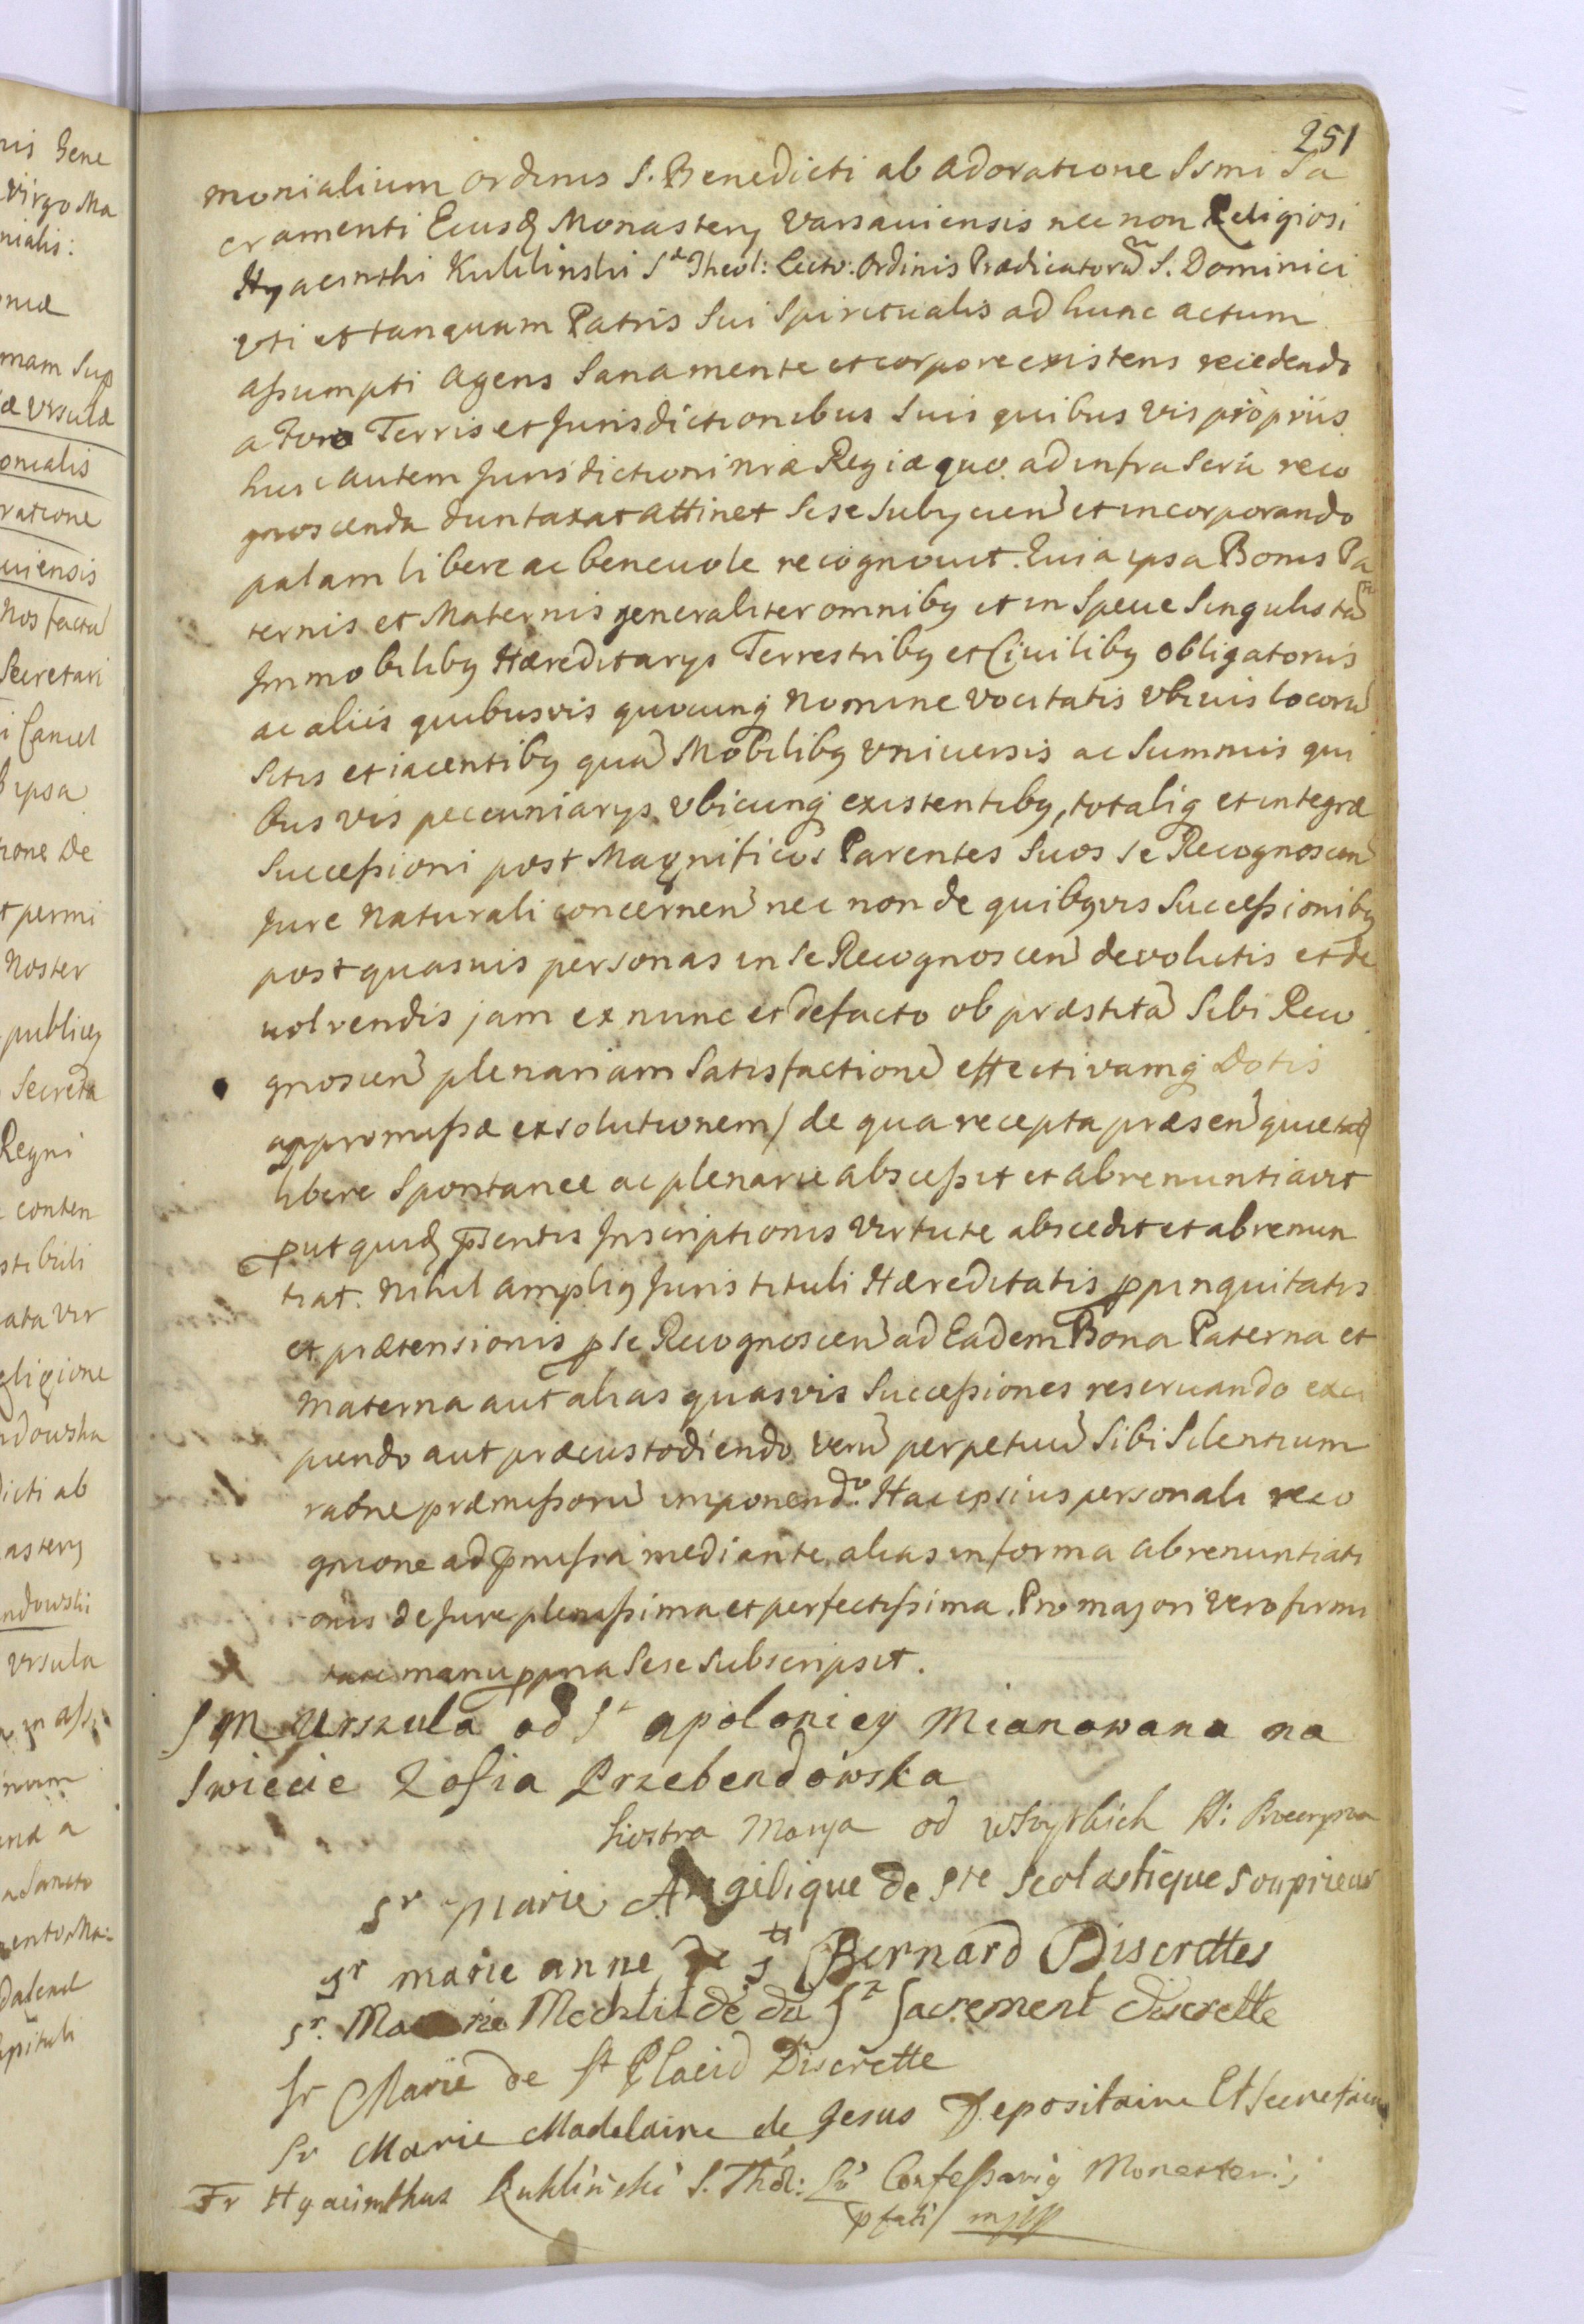 251
monialium ordinis S. Benedicti ab adoratione Ssmi Sa
cramenti Eiusq Monastery Varsaviensis nec non Religiosi
Hyacinthi Kuklinski S. Theol: Lecto: Ordinis Prædicatorũ S. Dominici
uti et tanquam Patris Sui Spiritualis ad hunc actum
aſsumpti agens Sana mente et corpore existens recedendo
a Foro Terris et Jurisdictionibus Suis quibus vis propriis
huic autem Jurisdictioni nræ Regiæ quo ad infra Scrũ reco
gnoscenda duntaxat attinet Sese Subyciend et incorporando
palam libere ac benevole recognovit. Quia ipsa Bonis Pa
ternis et Maternis generaliter omniby et in Specie Singulis tam
Immobiliby Hæreditarys Terrestriby et Civiliby obligatoriis
ac aliis quibusvis quocunq nomine vocitatis ubivis locorũ
Sitis et iacentiby quã Mobiliby Universis ac Summis qui
bus vis peccuniarys ubicunq existentiby, totaliq et integræ
Succeſsioni post Magnificos Parentes Suos Se Recognoscen
Jure naturali concernen nec non de quibyvis Succeſsioniby
post quasvis personas in Se Recognoscen devolutis et de
volvendis jam ex nunc et de facto ob præstitã Sibi Reco
gnoscen plenariam Satisfactionẽ effectivamq Dotis
appromiſsæ exsolutionem / de qua recepta præsen quietat /
libere Spontanee ac plenarie absceſsit et abrenuntiavit
prout quidẽ pſentis Inscriptionis Virtute abscedit et abrenun
tiat. Nihil ampliy Juris tituli Hæreditatis ppinquitatis
et prætensionis p Se Recognoscen ad Eadem Bona Paterna et
Materna aut alias quasvis Succeſsiones reservando exci
piendo aut præcustodiendo verũ perpetuũ Sibi Silentium
raõne præmiſsorũ imponendo. Hac ipsius personali reco
gnicione ad pmiſsa mediante, alias in forma abrenuntiati
onis de Jure pleniſsima et perfectiſsima. Pro majori vero firmi
tate manu ppria Sese Subscripsit.
S M Urszula od St apoloniey Mianowana na
Swiecie Zofia Przebendowska
Siostra Marya od wszytkich SS:
Sr Marie Angelique de Ste Scolastique Souprieur
Sr marie anne de St Bernard Discrettes
Sr. Marie Mechtilde du St Sacrement discrette
Sr Marie de St Placid Discrette
Sr Marie Madelaine de Jesus Depositaire Et Secretaire
Fr Hyacinthus Kukliński S. Thõl: Confeſsariy Monasterij
pfati / mpp